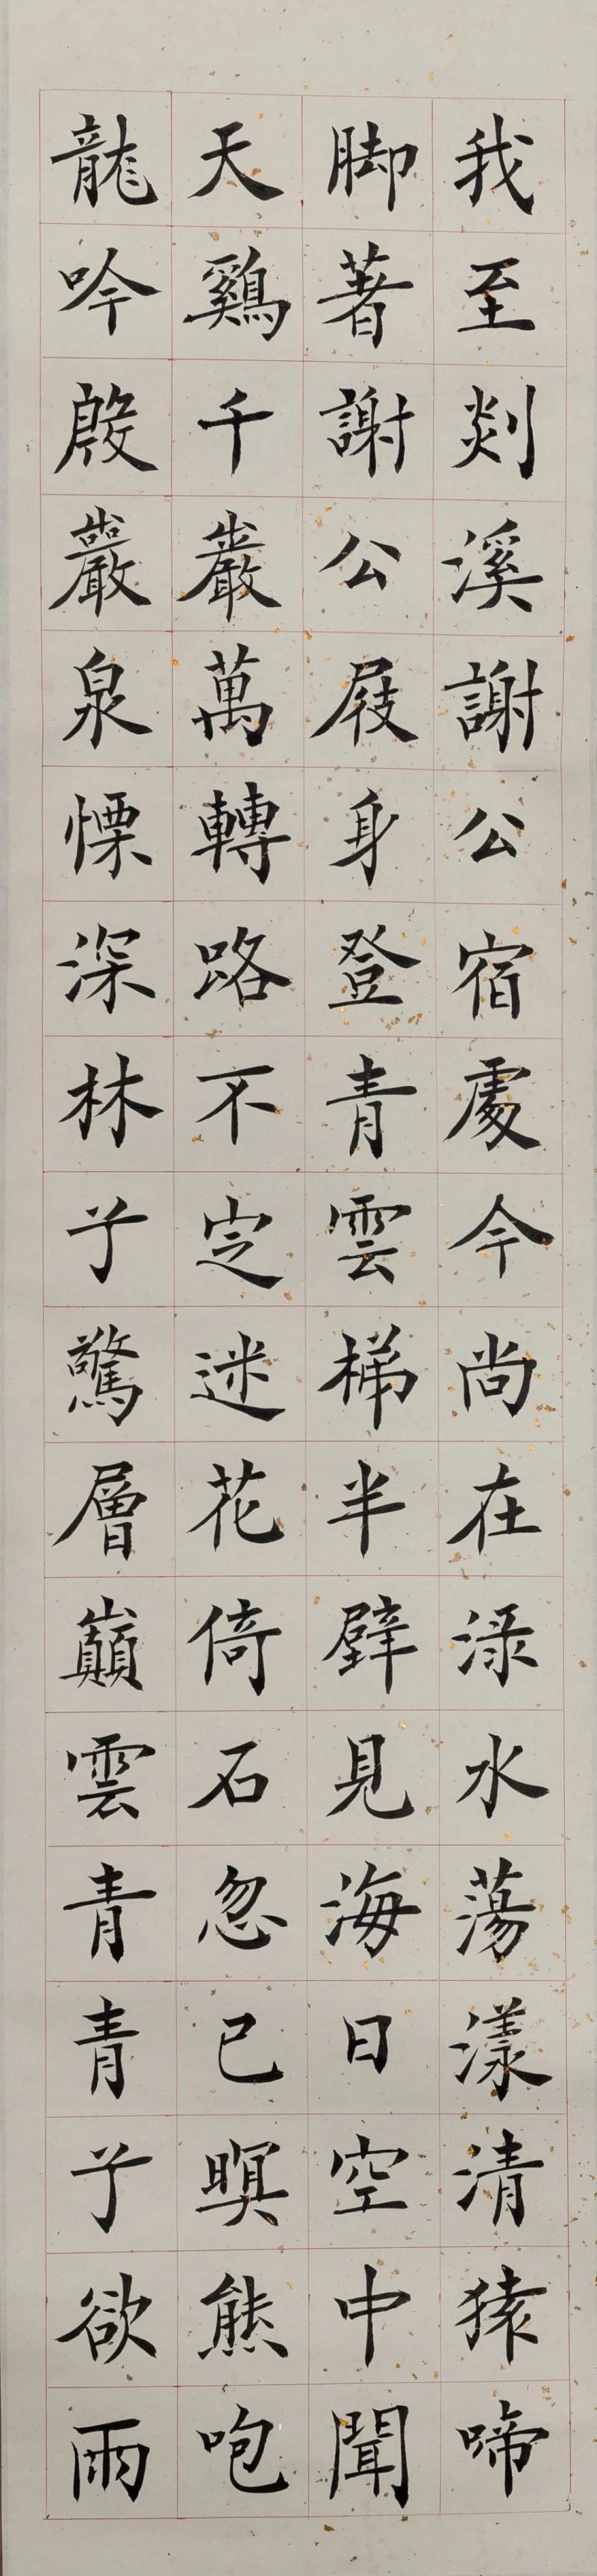 我至剡溪謝公宿處今尚在渌水蕩漾清猿啼
脚著謝公屐身登青雲梯半壁見海日空中聞
天鷄千巖萬轉路不定迷花倚石忽已暝熊咆
龍吟殷巖泉慄深林兮驚層巔雲青青兮欲雨